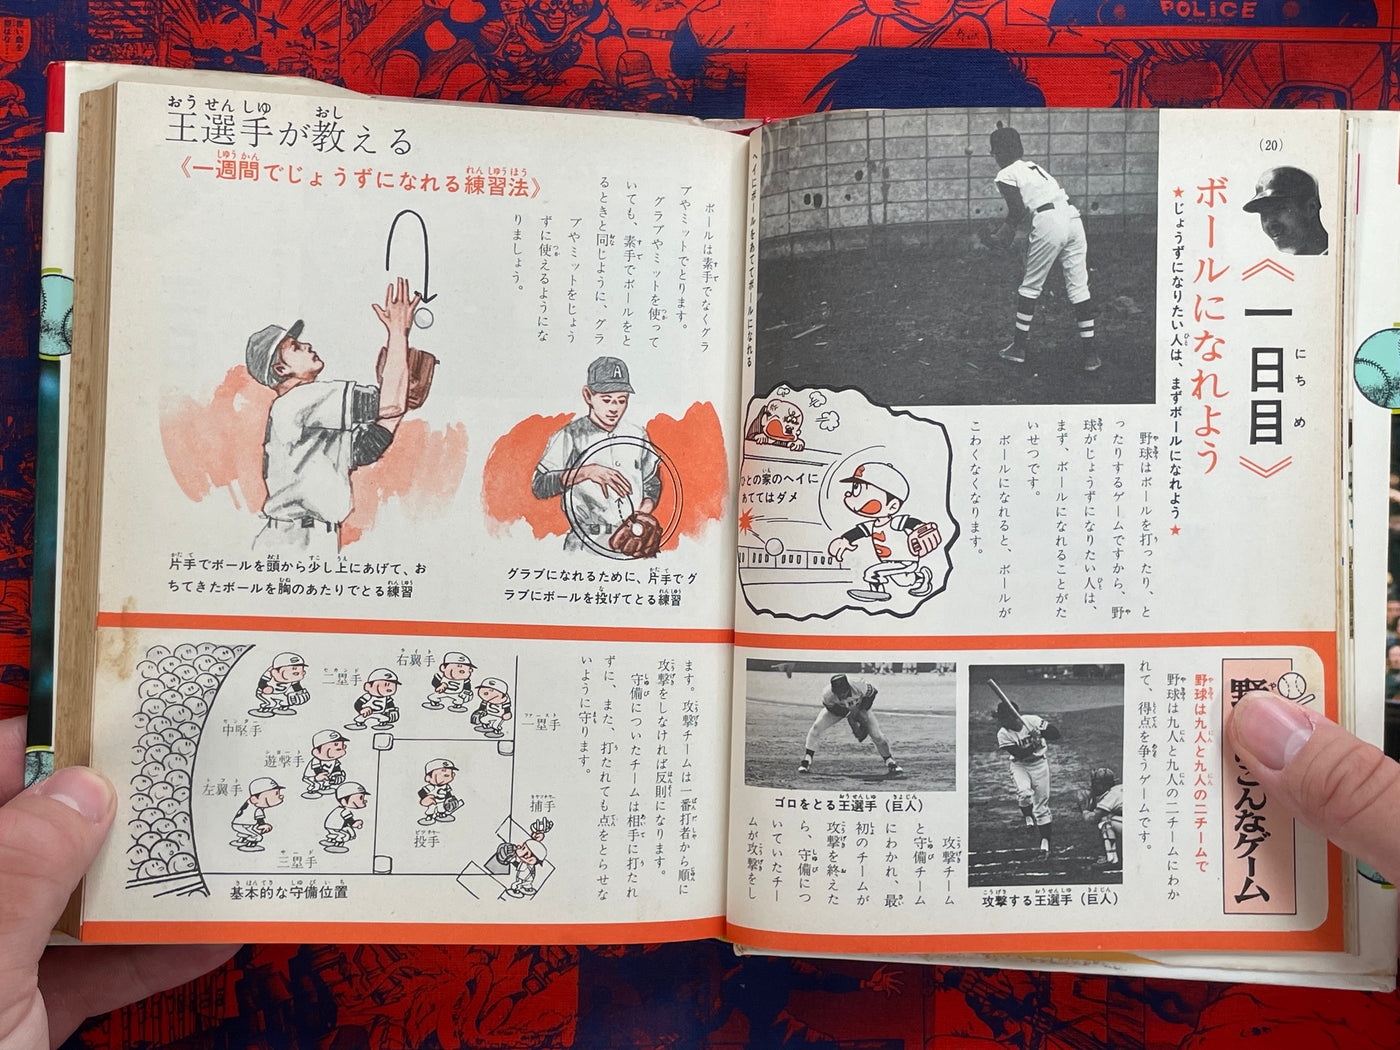 POLICE
(20)
《一日目》
にちめ
ボールになれよう
★じょうずになりたい人は、まずボールになれよう★
野球はボールを打ったり、と
ったりするゲームですから、野
球がじょうずになりたい人は、
まず、ボールになれることがた
いせつです。
ボールになれると、ボールが
こわくなくなります。
7
ひとの家のヘイに
あててはダメ
ヘイにボールをあててボールになれる
王選手が教える
おうせんしゅ
おし
《一週間でじょうずになれる練習法》
しゅうかん
れんしゅうほう
ボールは素手でなくグラ
ブやミットでとります。
グラブやミットを使って
いても、素手でボールをと
るときと同じように、グラ
ブやミットをじょう
ずに使えるようにな
りましょう。
A
片手でボールを頭から少し上にあげて、お
ちてきたボールを胸のあたりでとる練習
グラブになれるために、片手でグ
ラブにボールを投げてとる練習
野球は九人と九人の二チームで
野球は九人と九人の二チームにわか
れて、得点を争うゲームです。
攻撃する王選手(巨人)
ゴロをとる王選手(巨人)
攻撃チーム
と守備チーム
にわかれ、最
初のチームが
攻撃を終えた
ら、守備につ
いていたチー
ムが攻撃をし
ます。攻撃チームは一番打者から順に
攻撃をしなければ反則になります。
守備についたチームは相手に打たれ
ずに、また、打たれても点をとらせな
いように守ります。
右翼手
ライト
二塁手
セカンド
一塁手
ファースト
中堅手
センター
遊撃手
ショート
左翼手
レフト
三塁手
サード
投手
ピッチャー
捕手
キャッチャー
基本的な守備位置
きほんてき しゅびいち